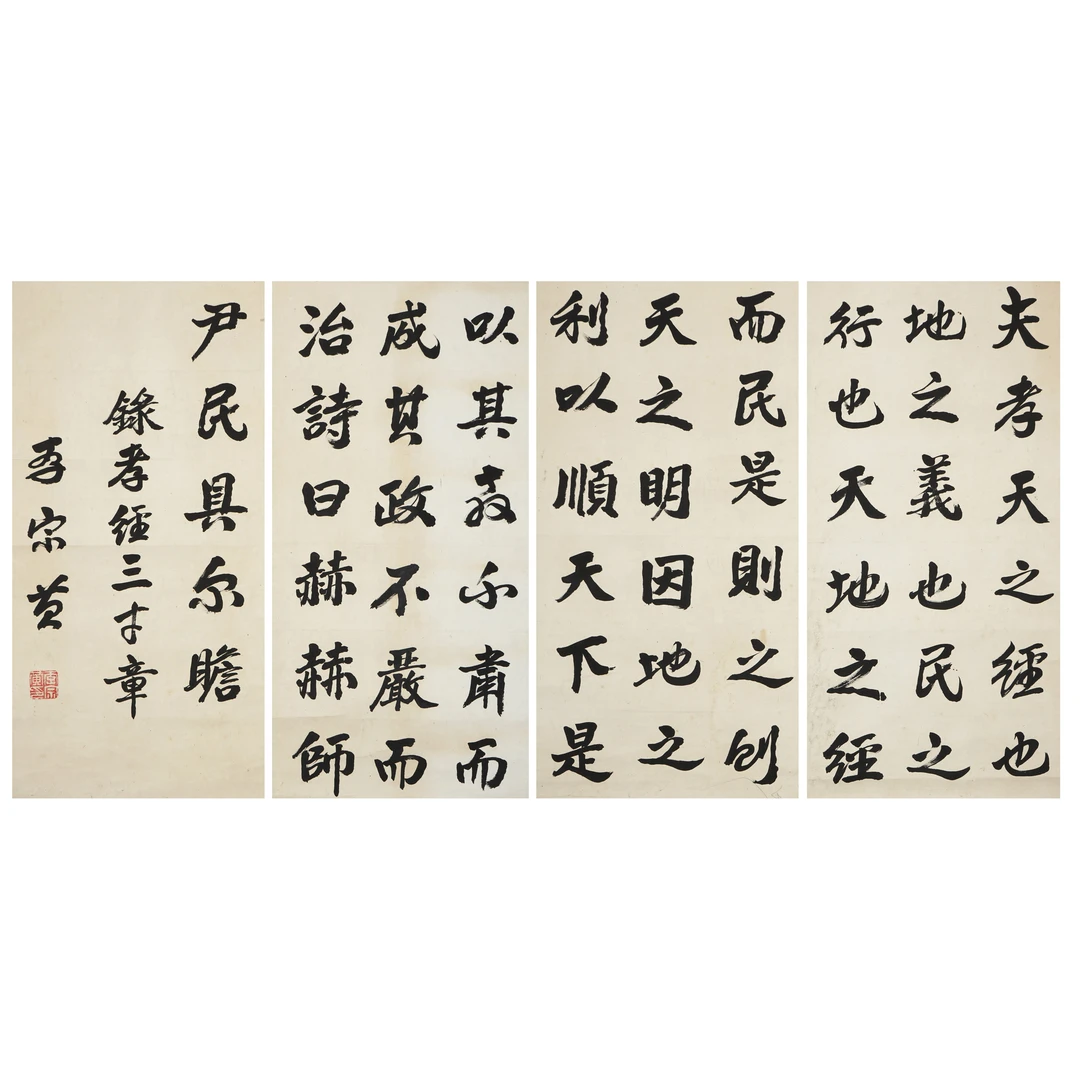 夫孝天之經也
地之義也民之
行也天地之經
而民是則之則
天之明因地之
利以順天下是
以其教不肅而
成其政不嚴而
治詩曰赫赫師
尹民具尔瞻
錄孝經三才章
李宗黄